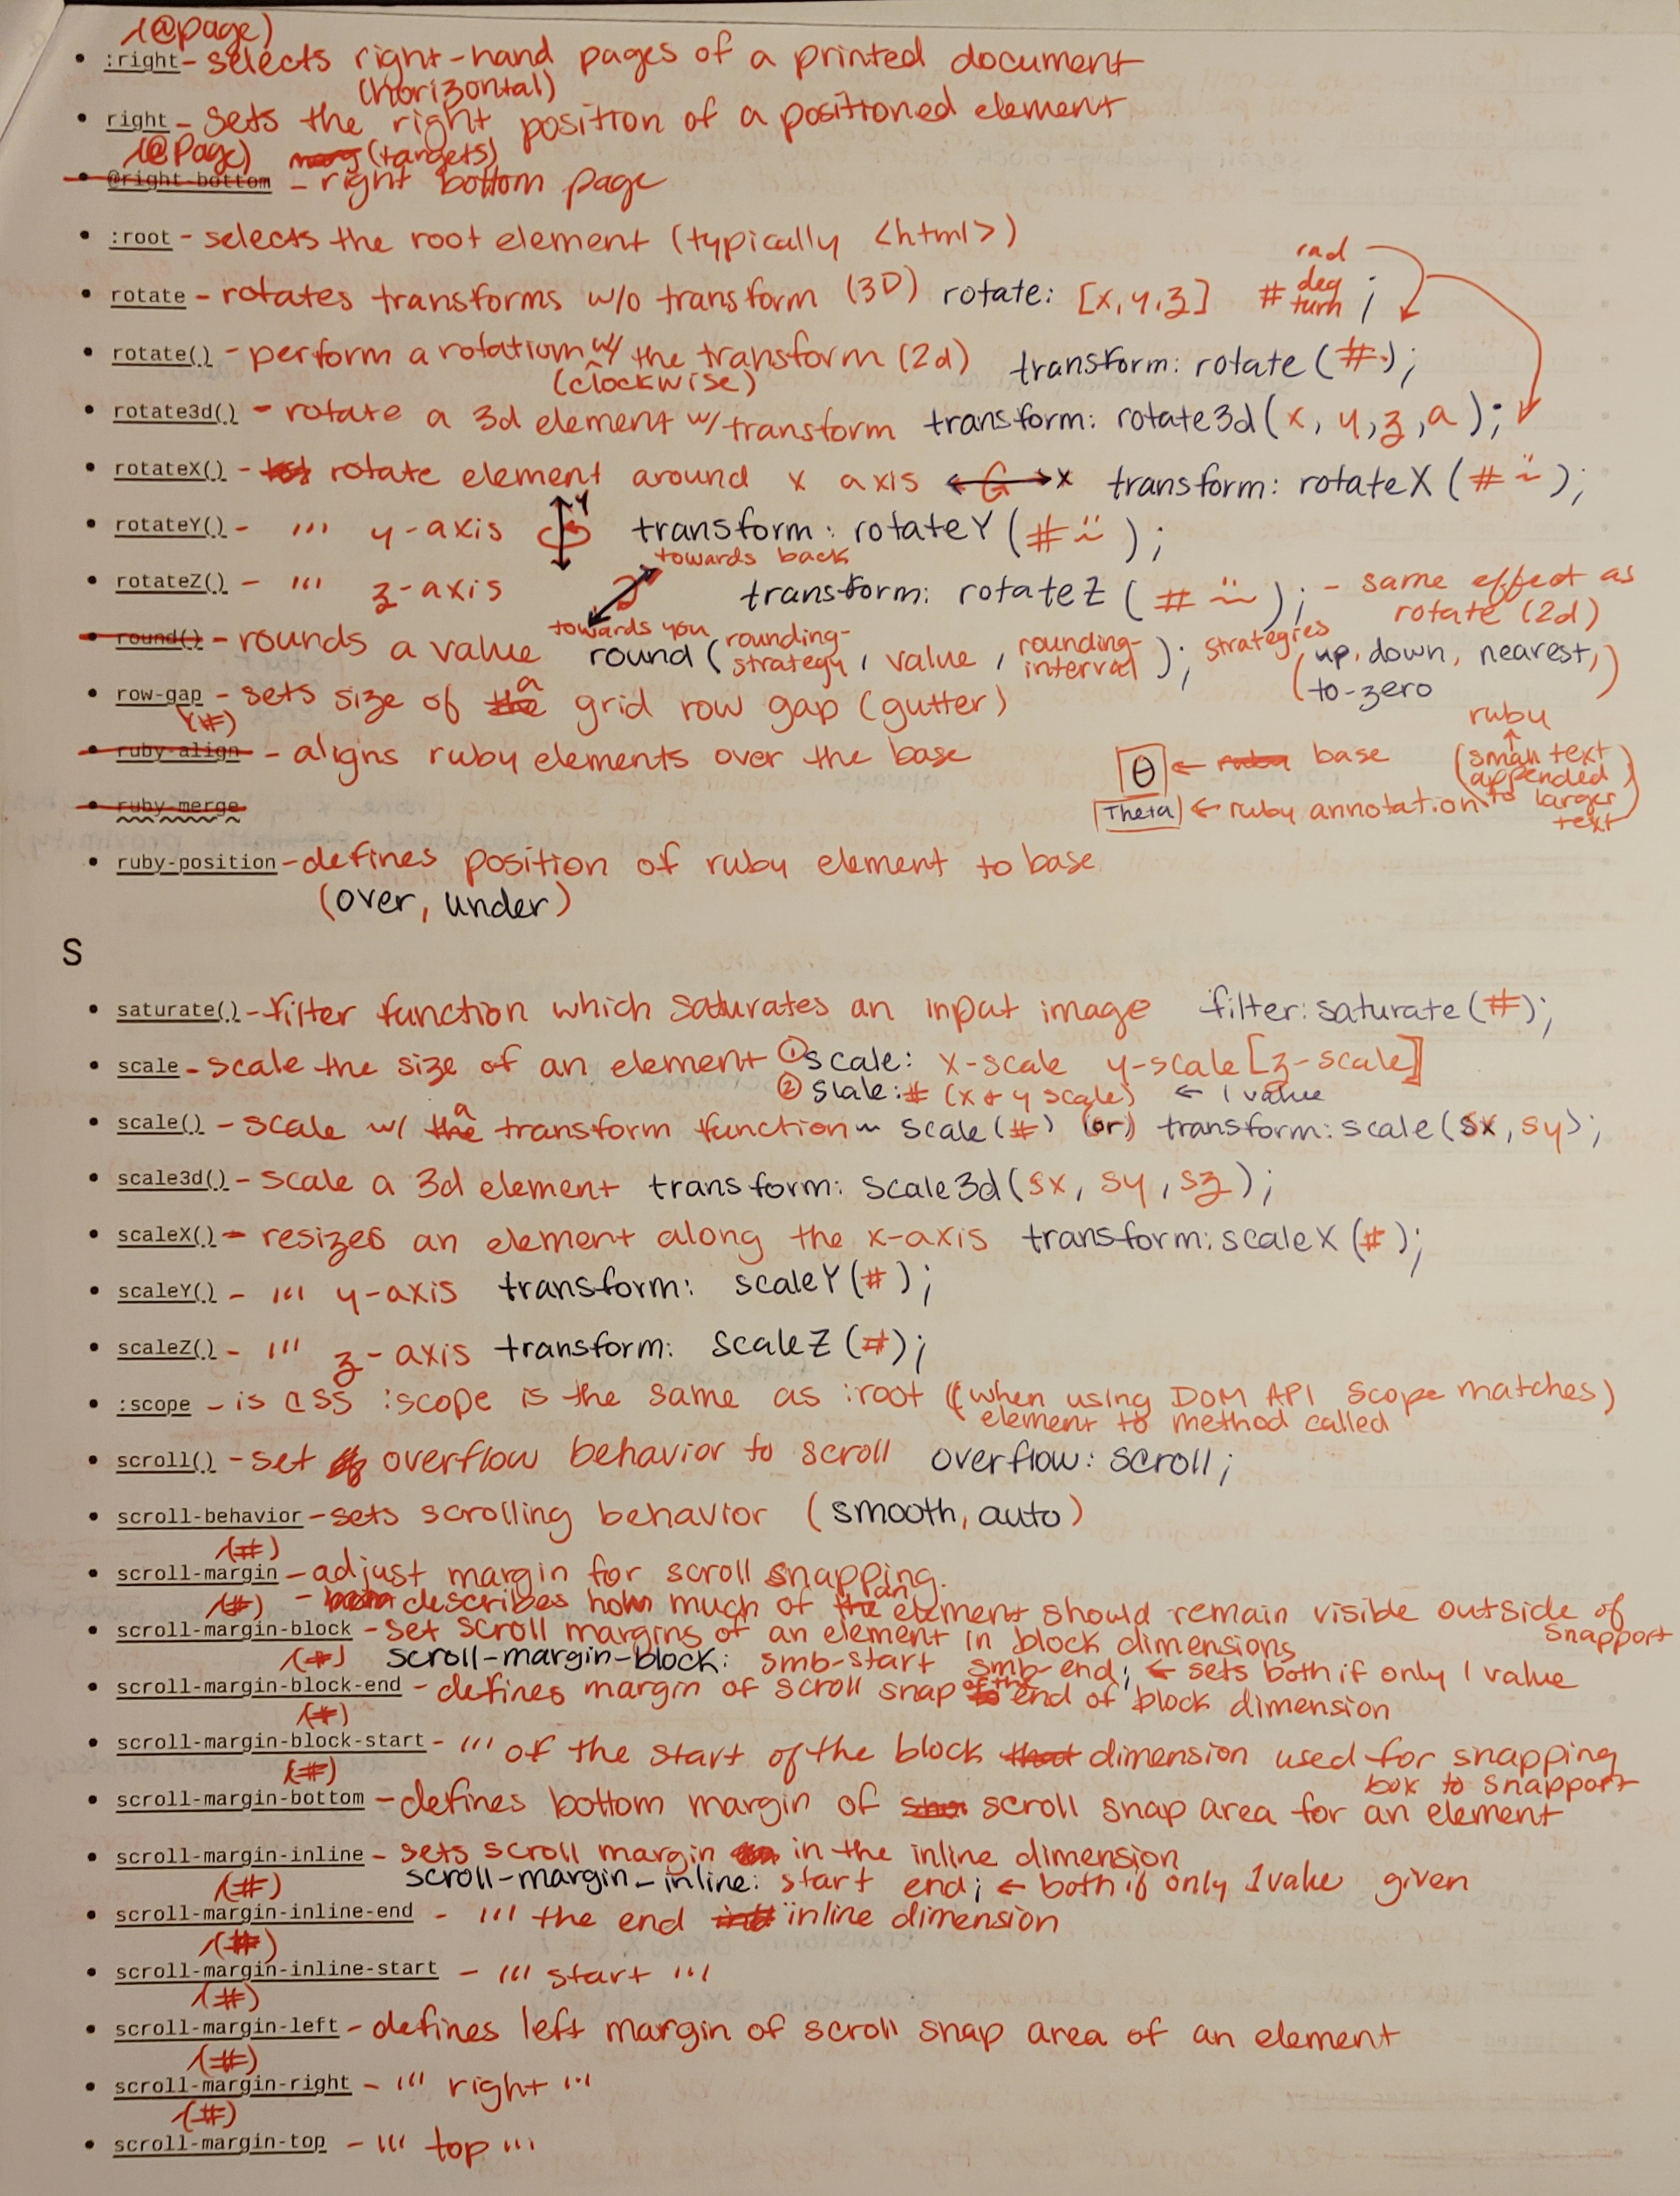 (@page)
• :right - selects right-hand pages of a printed document
(horizontal)
• right - sets the right position of a positioned element
(@Page) (targets)
• @right-bottom - right bottom page
• :root - selects the root element (typically <html>)
• rotate - rotates transforms w/o transform (3D) rotate: [x, y, z] # rad deg turn ;
• rotate() - perform a rotation w/ the transform (2d) transform: rotate (#);
(clockwise)
• rotate3d() - rotate a 3d element w/ transform transform: rotate3d(x, y, z, a);
• rotateX() - rotate element around x axis x transform: rotateX (# );
• rotateY() - ''' y-axis Y transform: rotateY (# );
towards back
• rotateZ() - ''' z-axis transform: rotateZ (# ); - same effect as rotate (2d)
towards you
• round() - rounds a value round (rounding-strategy, value, rounding-interval); strategies (up, down, nearest, to-zero)
• row-gap - sets size of a grid row gap (gutter)
(#)
ruby
• ruby-align - aligns ruby elements over the base θ ← base (small text appended to larger text)
• ruby-merge Theta ← ruby annotation
• ruby-position - defines position of ruby element to base
(over, under)
S
• saturate() - filter function which saturates an input image filter: saturate(#);
• scale - scale the size of an element ① scale: x-scale y-scale [z-scale]
② slale: # (x & y scale) ← 1 value
• scale() - scale w/ a transform function ~ scale (#) (or) transform: scale(sx, sy);
• scale3d() - scale a 3d element transform: scale3d(sx, sy, sz);
• scaleX() - resizes an element along the x-axis transform: scaleX (#);
• scaleY() - ''' y-axis transform: scaleY(#);
• scaleZ() - ''' z-axis transform: scaleZ (#);
• :scope - is CSS :scope is the same as :root (when using DOM API scope matches)
element to method called
• scroll() - set overflow behavior to scroll overflow: scroll;
• scroll-behavior - sets scrolling behavior (smooth, auto)
(#)
• scroll-margin - adjust margin for scroll snapping.
(#) - describes how much of an element should remain visible outside of snapport
• scroll-margin-block - set scroll margins of an element in block dimensions
(#) scroll-margin-block: smb-start smb-end; ← sets both if only 1 value
• scroll-margin-block-end - defines margin of scroll snap of the end of block dimension
(#)
• scroll-margin-block-start - ''' of the start of the block dimension used for snapping
(#) box to snapport
• scroll-margin-bottom - defines bottom margin of scroll snap area for an element
• scroll-margin-inline - sets scroll margin in the inline dimension
(#) scroll-margin-inline: start end; ← both if only 1 value given
• scroll-margin-inline-end - ''' the end inline dimension
(#)
• scroll-margin-inline-start - ''' start '''
(#)
• scroll-margin-left - defines left margin of scroll snap area of an element
(#)
• scroll-margin-right - ''' right '''
(#)
• scroll-margin-top - ''' top '''